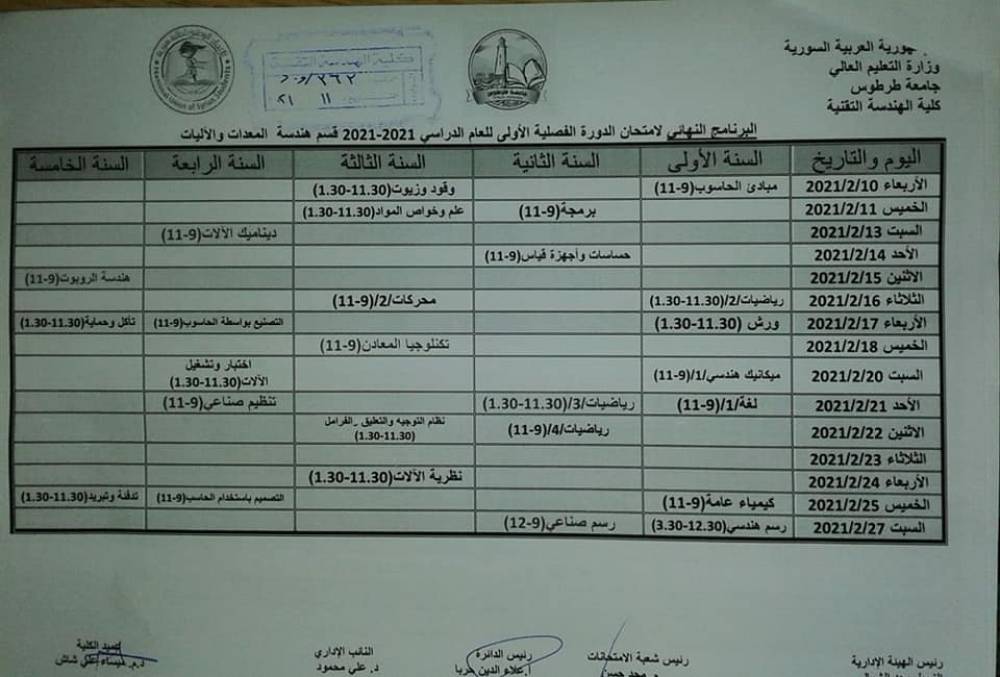 جهورية العربية السورية
وزارة التعليم العالي
جامعة طرطوس
كلية الهندسة التقنية
كلية الهندسة التقنية
البرنامج النهائي لامتحان الدورة الفصلية الأولى للعام الدراسي 2021-2021 قسم هندسة المعدات والآليات
اليوم والتاريخ السنة الأولى السنة الثانية السنة الثالثة السنة الرابعة السنة الخامسة
الأربعاء 2021/2/10 مبادئ الحاسوب(9-11) وقود وزيوت(11.30-1.30)
الخميس 2021/2/11 برمجة(9-11) علم وخواص المواد(11.30-1.30)
السبت 2021/2/13 ديناميك الآلات(9-11)
الأحد 2021/2/14 حساسات وأجهزة قياس(9-11)
الاثنين 2021/2/15 هندسة الروبوت(9-11)
الثلاثاء 2021/2/16 رياضيات/2/(11.30-1.30) محركات/2/(9-11)
الأربعاء 2021/2/17 ورش (11.30-1.30) التصنيع بواسطة الحاسوب(9-11) تآكل وحماية(11.30-1.30)
الخميس 2021/2/18 تكنلوجيا المعادن(9-11)
السبت 2021/2/20 ميكانيك هندسي/1/(9-11) اختبار وتشغيل
الآلات(11.30-1.30)
الأحد 2021/2/21 لغة/1/(9-11) رياضيات/3/(11.30-1.30) تنظيم صناعي(9-11)
الاثنين 2021/2/22 رياضيات/4/(9-11) نظام التوجيه والتعليق _الفرامل
(11.30-1.30)
الثلاثاء 2021/2/23
الأربعاء 2021/2/24 نظرية الآلات(11.30-1.30)
الخميس 2021/2/25 كيمياء عامة(9-11) التصميم باستخدام الحاسب(9-11) تدفئة وتبريد(11.30-1.30)
السبت 2021/2/27 رسم هندسي(12.30-3.30) رسم صناعي(9-12)
رئيس الهيئة الإدارية رئيس شعبة الامتحانات رئيس الدائرة النائب الإداري عميد الكلية
أ.علاء الدين حربا د. علي محمود د.م. ميساء علي شاش